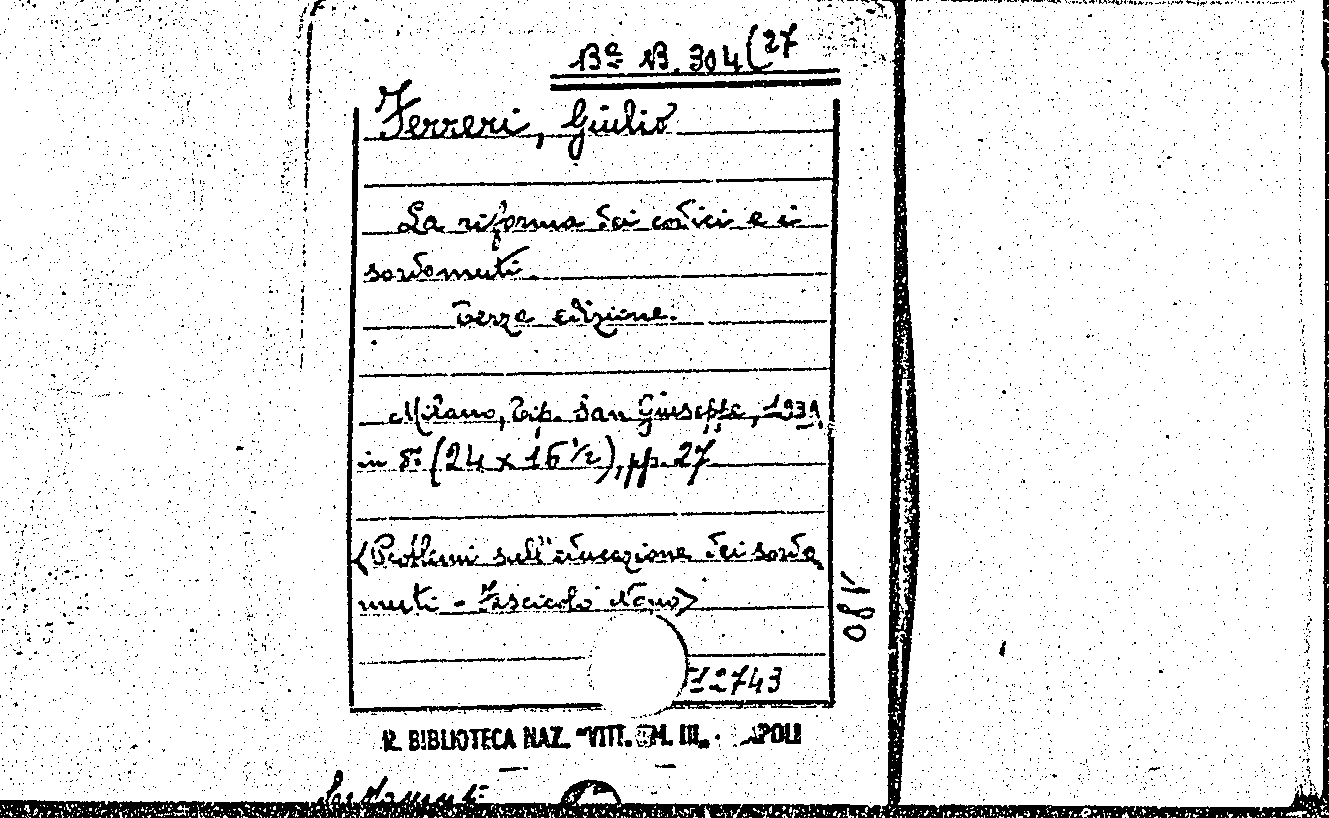 Bª B. 304(27
Ferreri, Giulio
La riforma dei codici e i
sordomuti.
Terza edizione.
Milano, Tip. San Giuseppe, 193
in 8º (24 x 16 1/2), pp. 27
(Problemi sull'educazione dei sordo
muti - Fascicolo Nono)
12743
180
R. BIBLIOTECA NAZ. "VITT. EM. III" · APOLI
Sordomuti